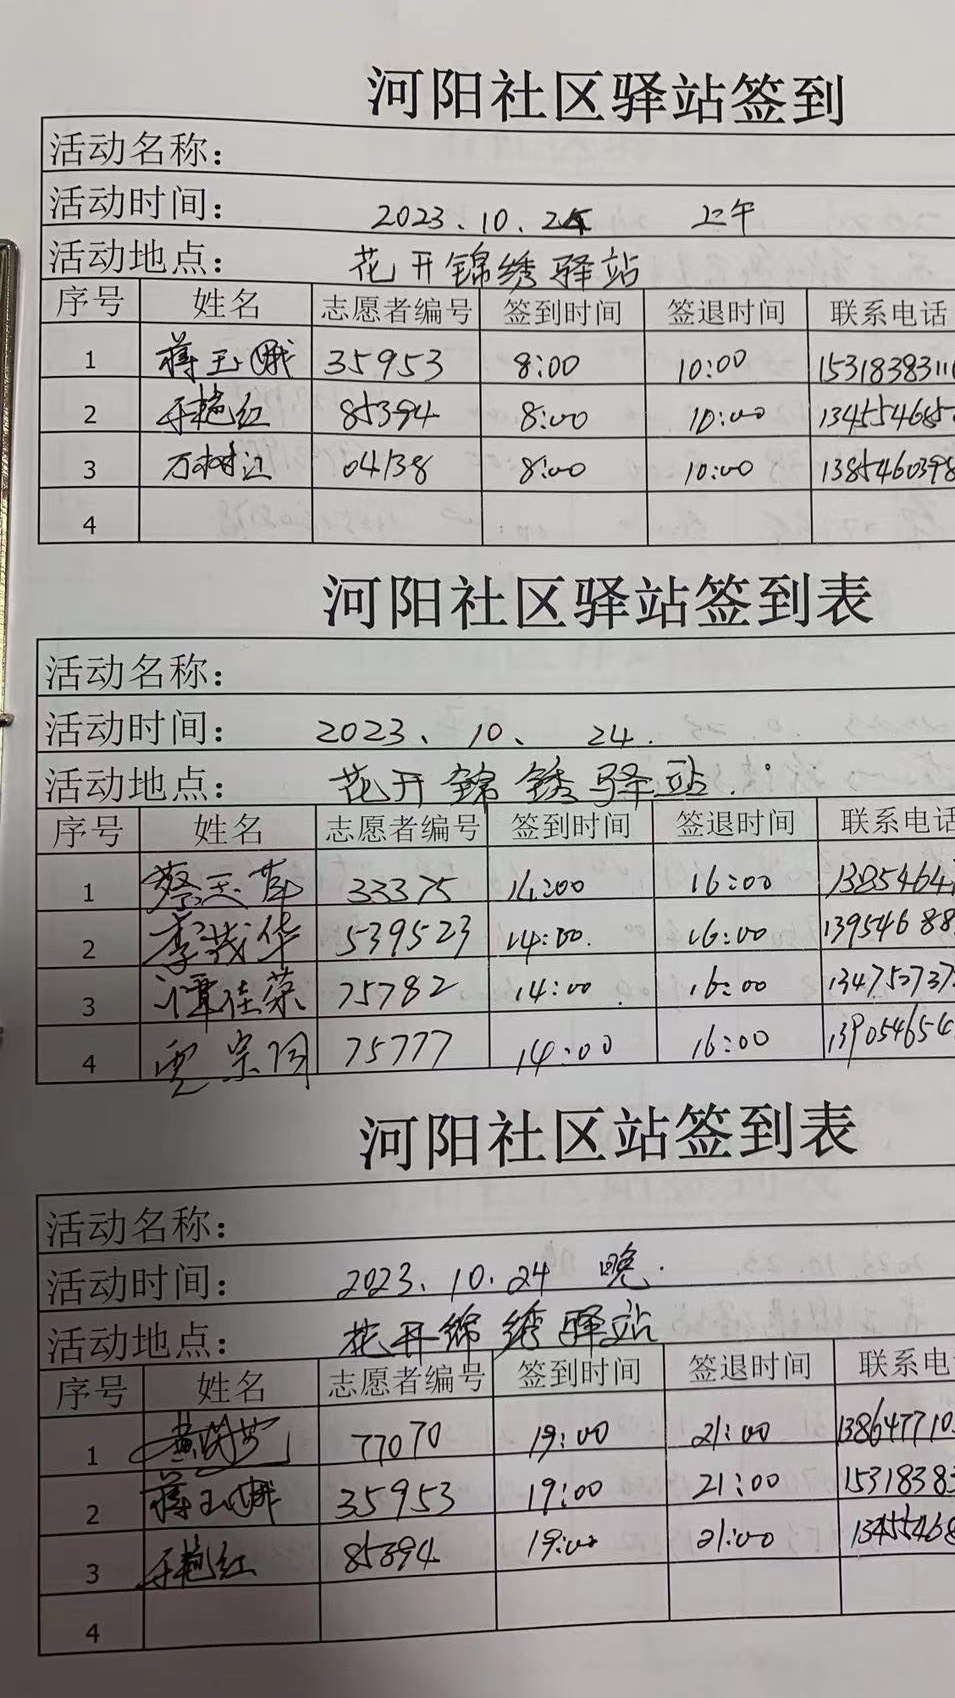 河阳社区驿站签到
活动名称：
活动时间： 2023.10.24 上午
活动地点： 花开锦绣驿站
序号 姓名 志愿者编号 签到时间 签退时间 联系电话
1 蒋玉娥 35953 8:00 10:00 153183831
2 于艳红 85394 8:00 10:00 134554685
3 万树江 04138 8:00 10:00 1385460398
4
河阳社区驿站签到表
活动名称：
活动时间： 2023、10、24.
活动地点： 花开锦锈驿站.
序号 姓名 志愿者编号 签到时间 签退时间 联系电话
1 蔡玉 33375 14:00 16:00 1385464
2 李茂华 539523 14:00. 16:00 139546 88
3 谭佳荣 75782 14:00 16:00 134750737
4 宗 75777 14:00 16:00 139054654
河阳社区站签到表
活动名称：
活动时间： 2023.10.24 晚.
活动地点： 花开锦绣驿站
序号 姓名 志愿者编号 签到时间 签退时间 联系电
1 77070 19:00 21:00 138647710
2 蒋玉娥 35953 19:00 21:00 15318383
3 于艳红 85394 19:00 21:00 13455468
4